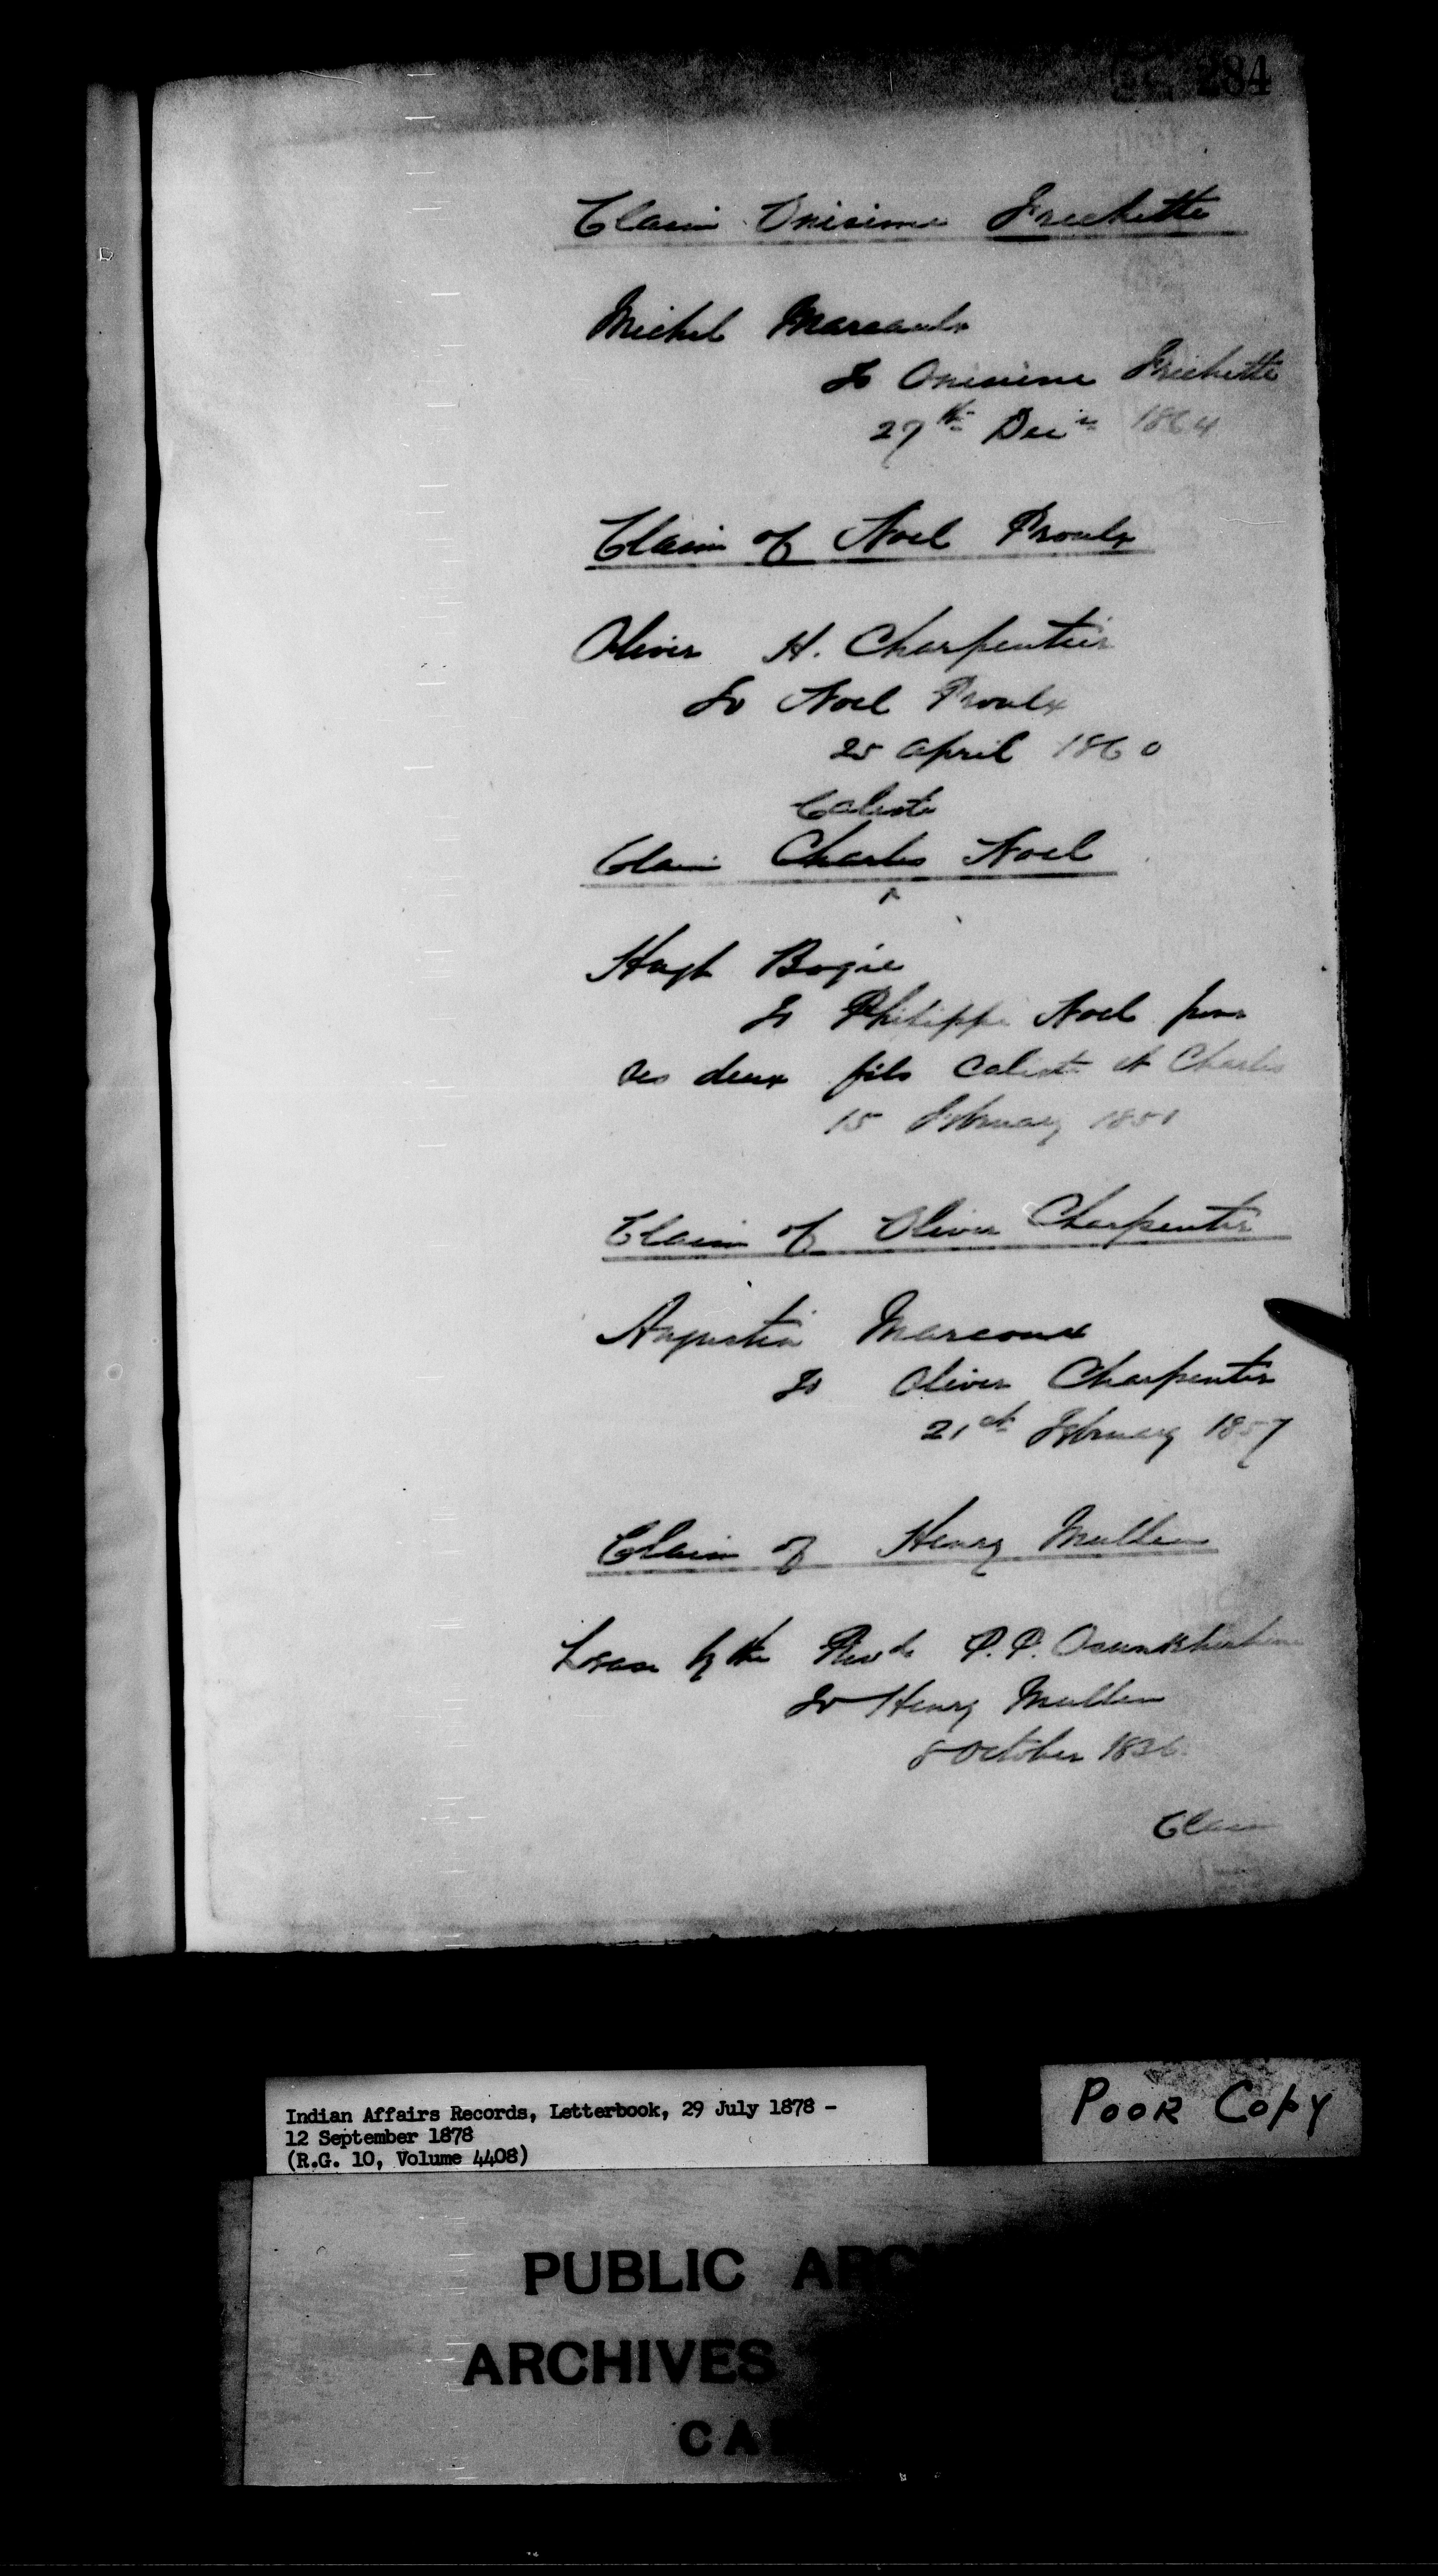 284
Claim Onisime Frechette
Michel Marcoulx
To Onisime Frechette
27th Decr 1864
Claim of Noel Proulx
Oliver H. Charpentier
To Noel Proulx
25 April 1860
Calixte
Claim Charles Noel
^
Hugh Bogie
To Philippe Noel pour
ses deux fils Calixte et Charles
15 February 1851
Claim of Oliver Charpentier
Augustin Marcoux
To Oliver Charpentier
21st February 1857
Claim of Henry Mullen
by the Revd P. P. Osunkhirhine
To Henry Mullen
October
Claim
Indian Affairs Records, Letterbook, 29 July 1878 -
12 September 1878
(R.G. 10, Volume 4408)
POOR COPY
PUBLIC ARC
ARCHIVES
CA